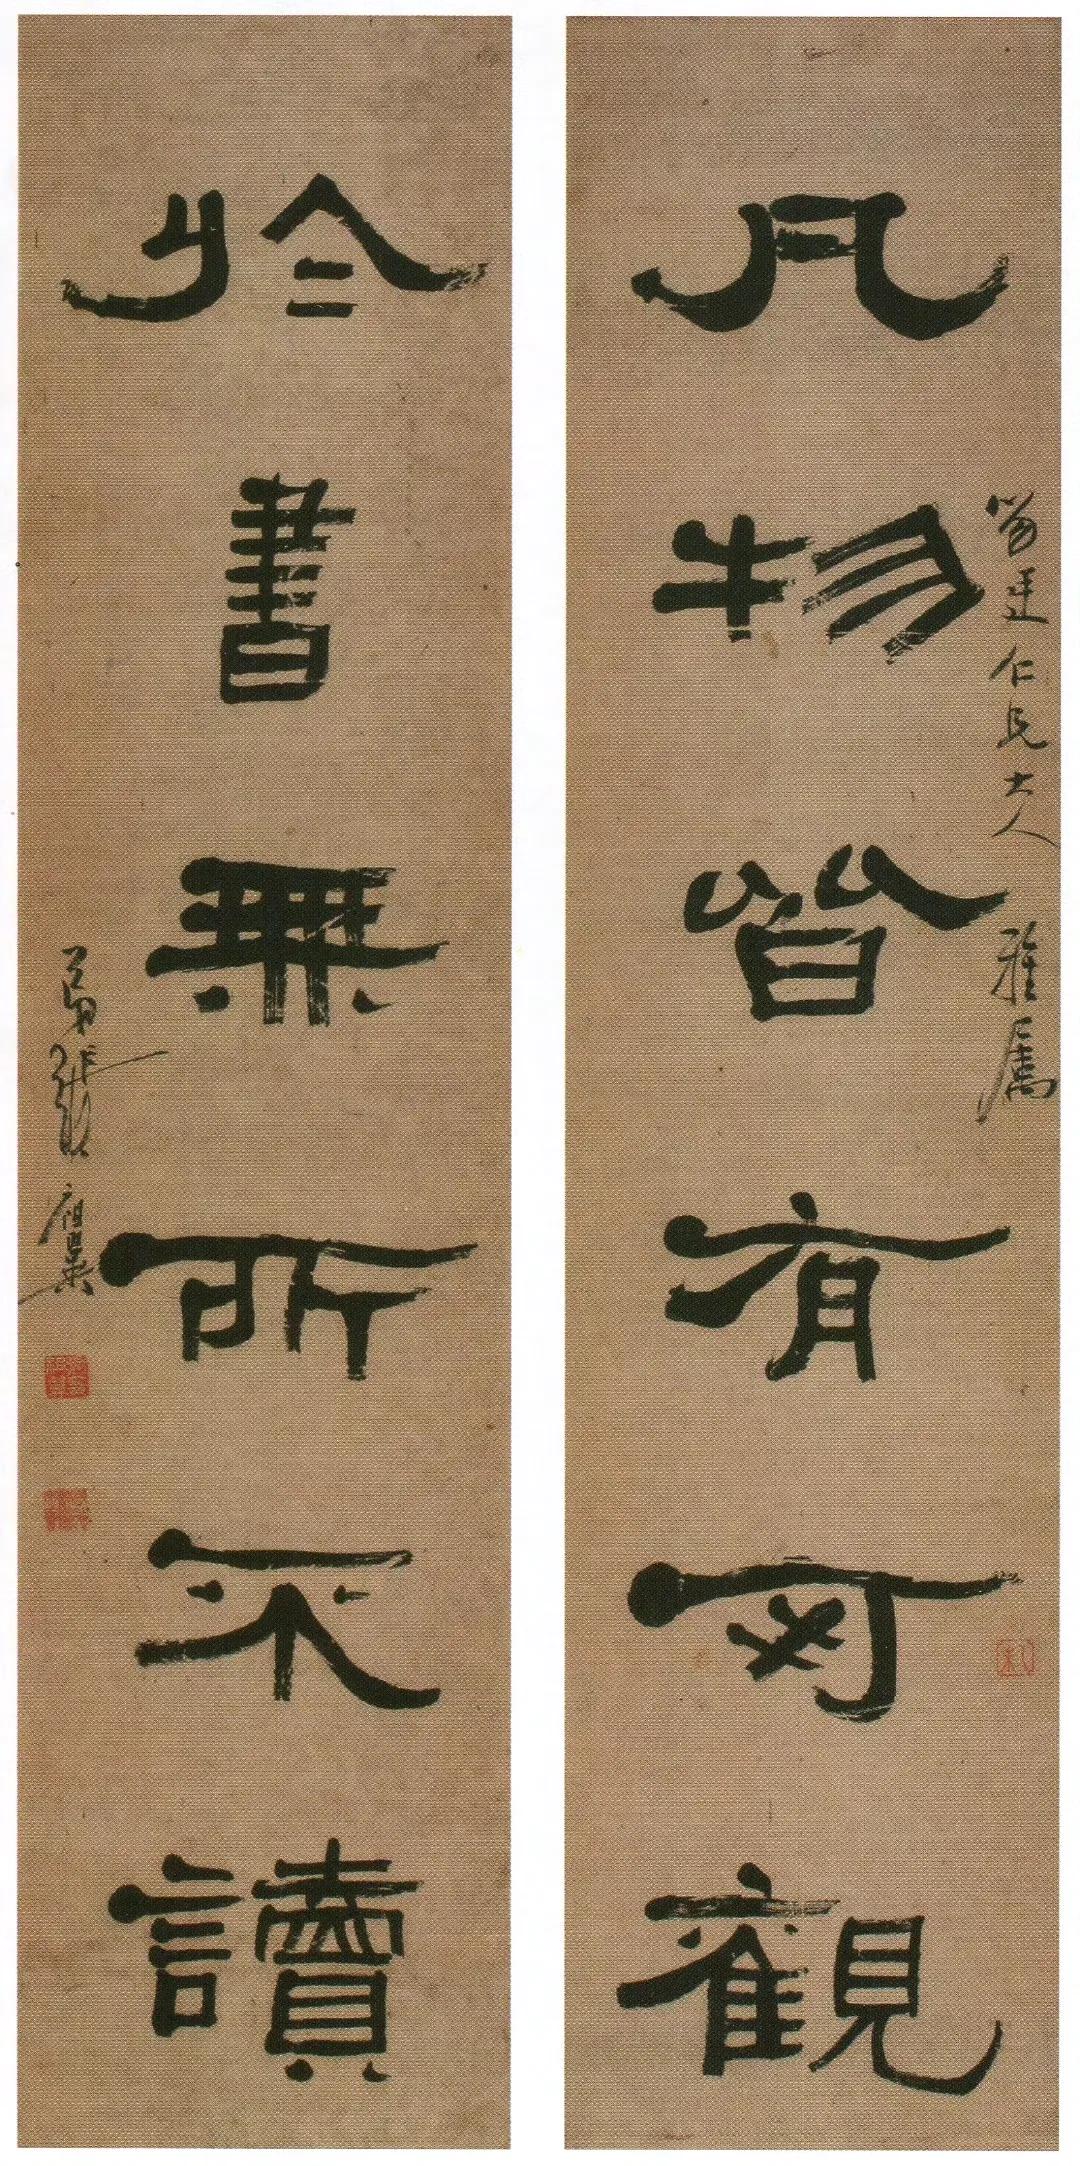 凡物皆有可觀
仁兄大人 雅屬
於書無所不讀
弟張